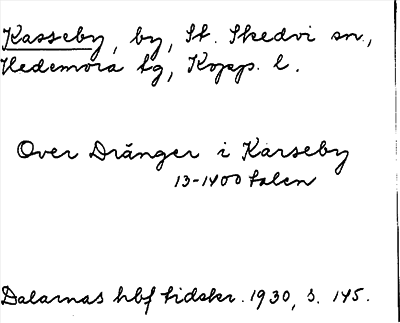 Kasseby, by, St. Skedvi sn.,
Hedemora tg, Kopp. l.
Over Dränger i Karseby
13-1400 talen
Dalarnas hbf tidskr. 1930, s. 145.